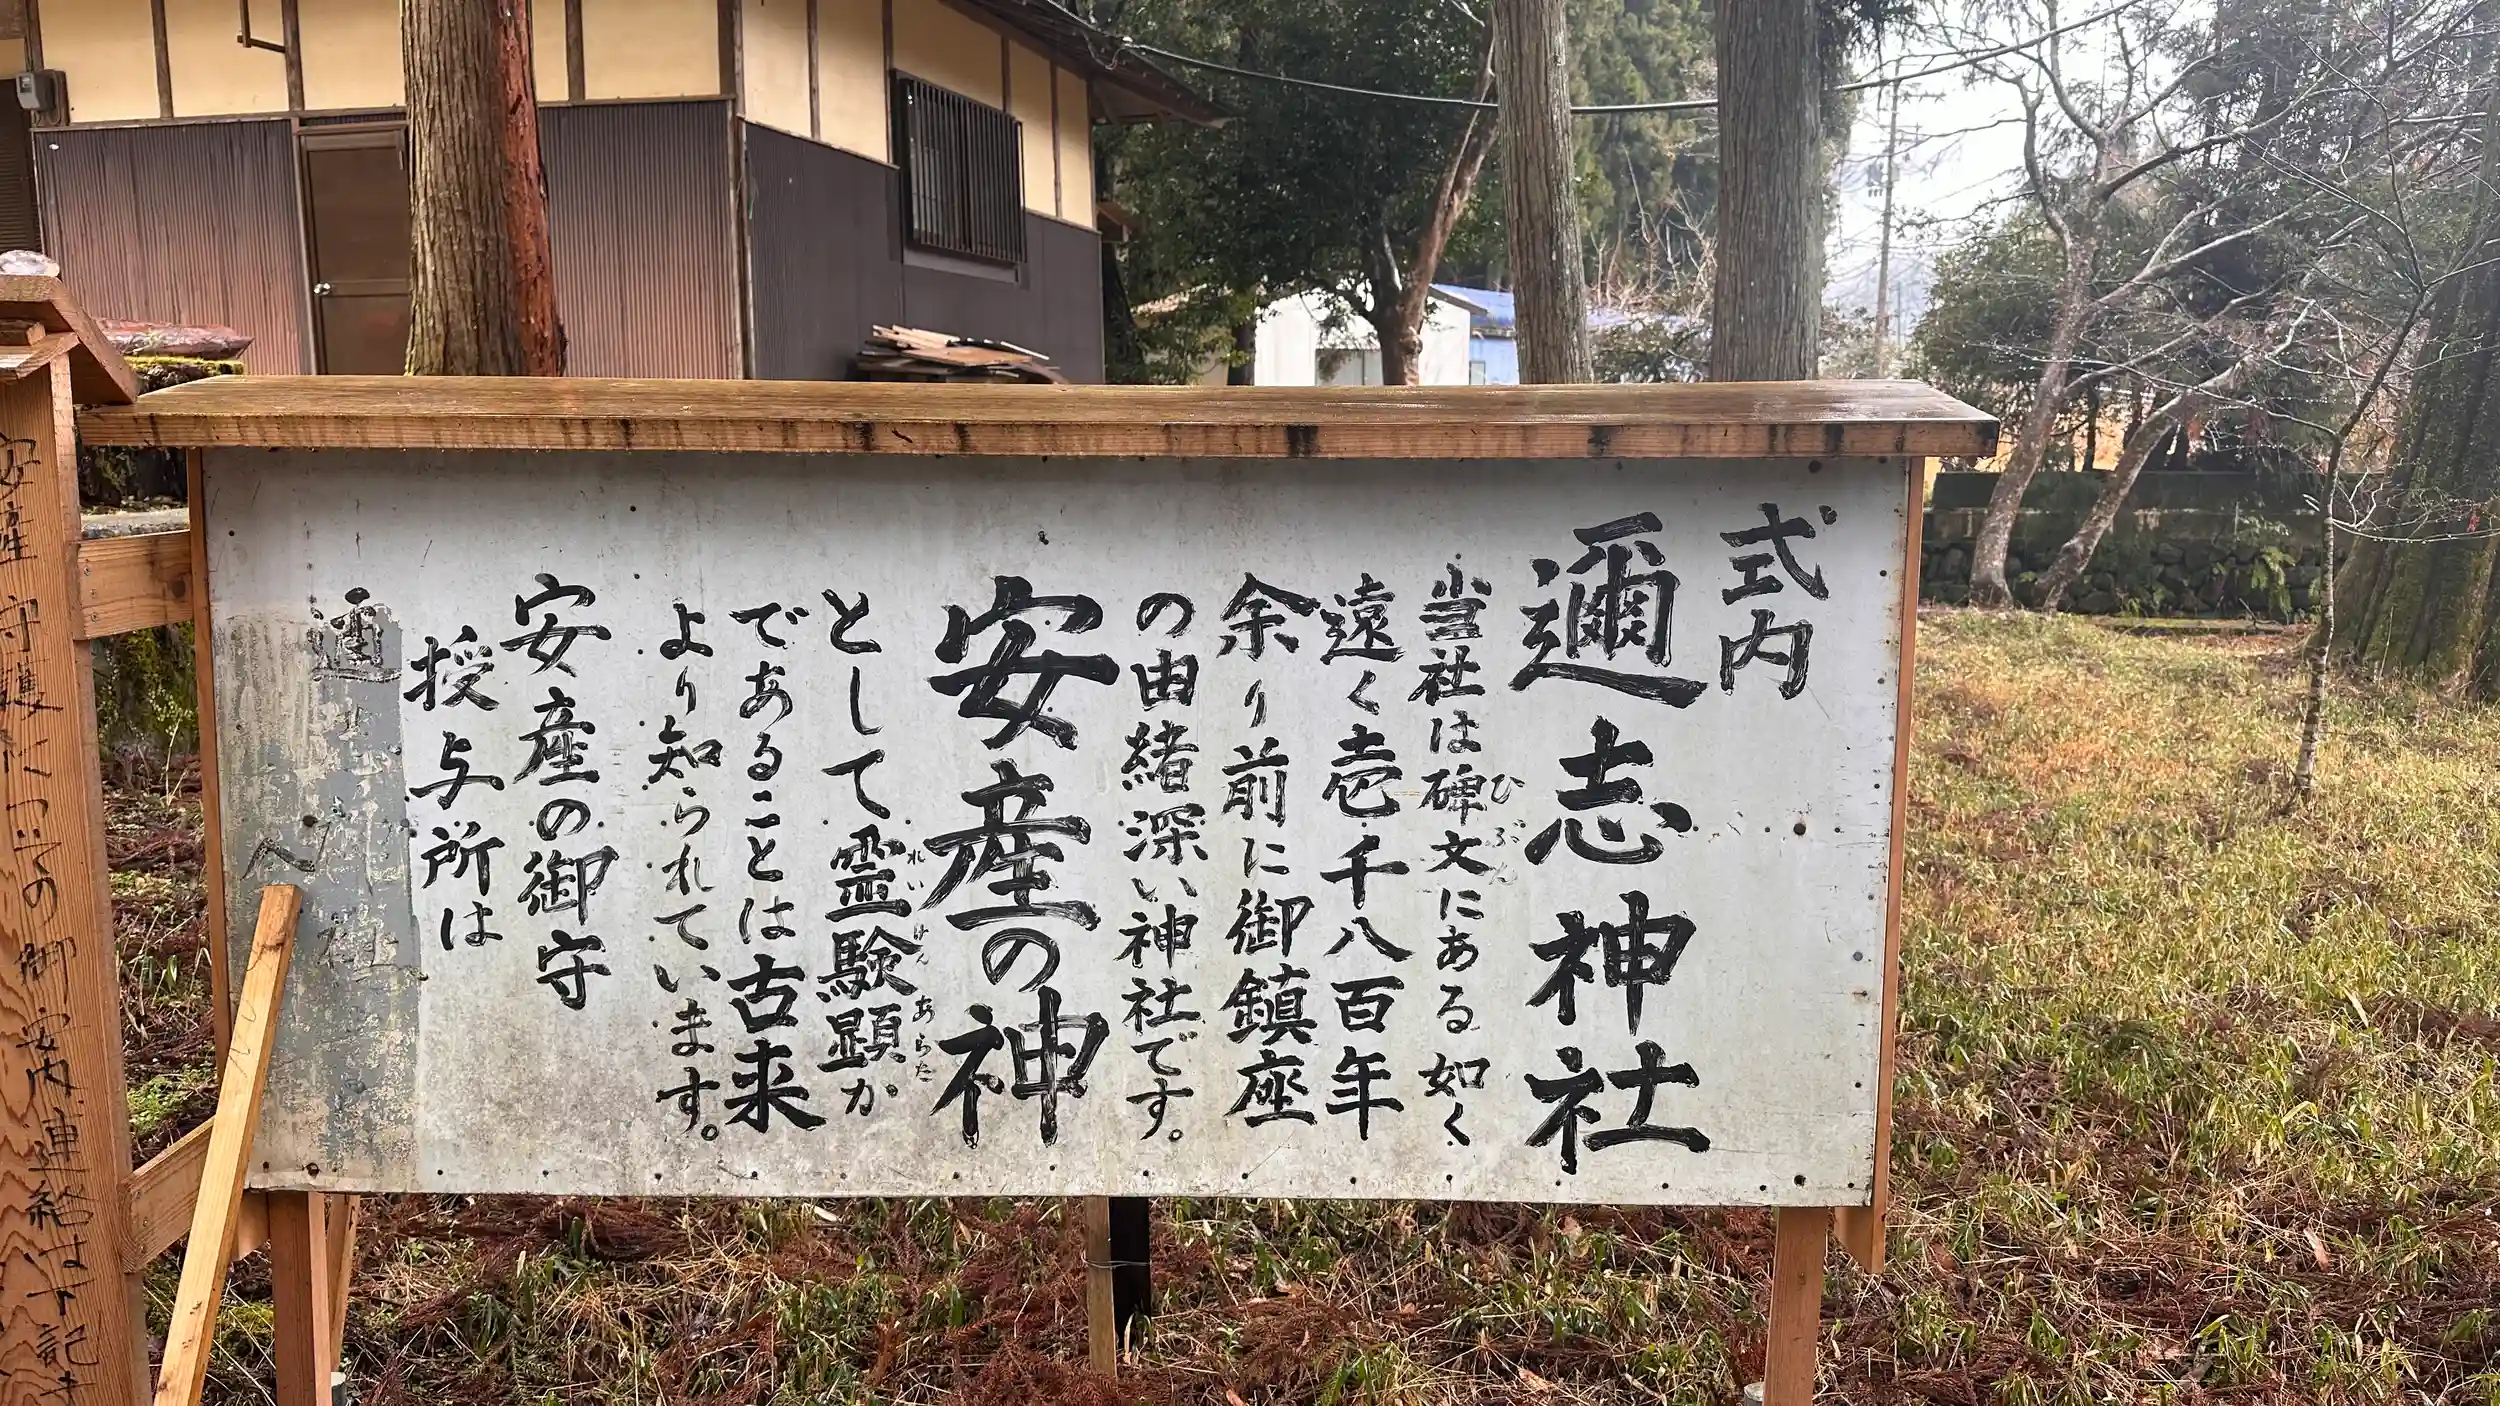 式内
邇志神社
当社は碑文にある如く
ひぶん
遠く壱千八百年
余り前に御鎮座
の由緒深い神社です。
安産の神
として霊験顕か
れいけんあらた
であることは古来
より知られています。
安産の御守
授与所は
へ
安産守護についての御案内連絡は下記